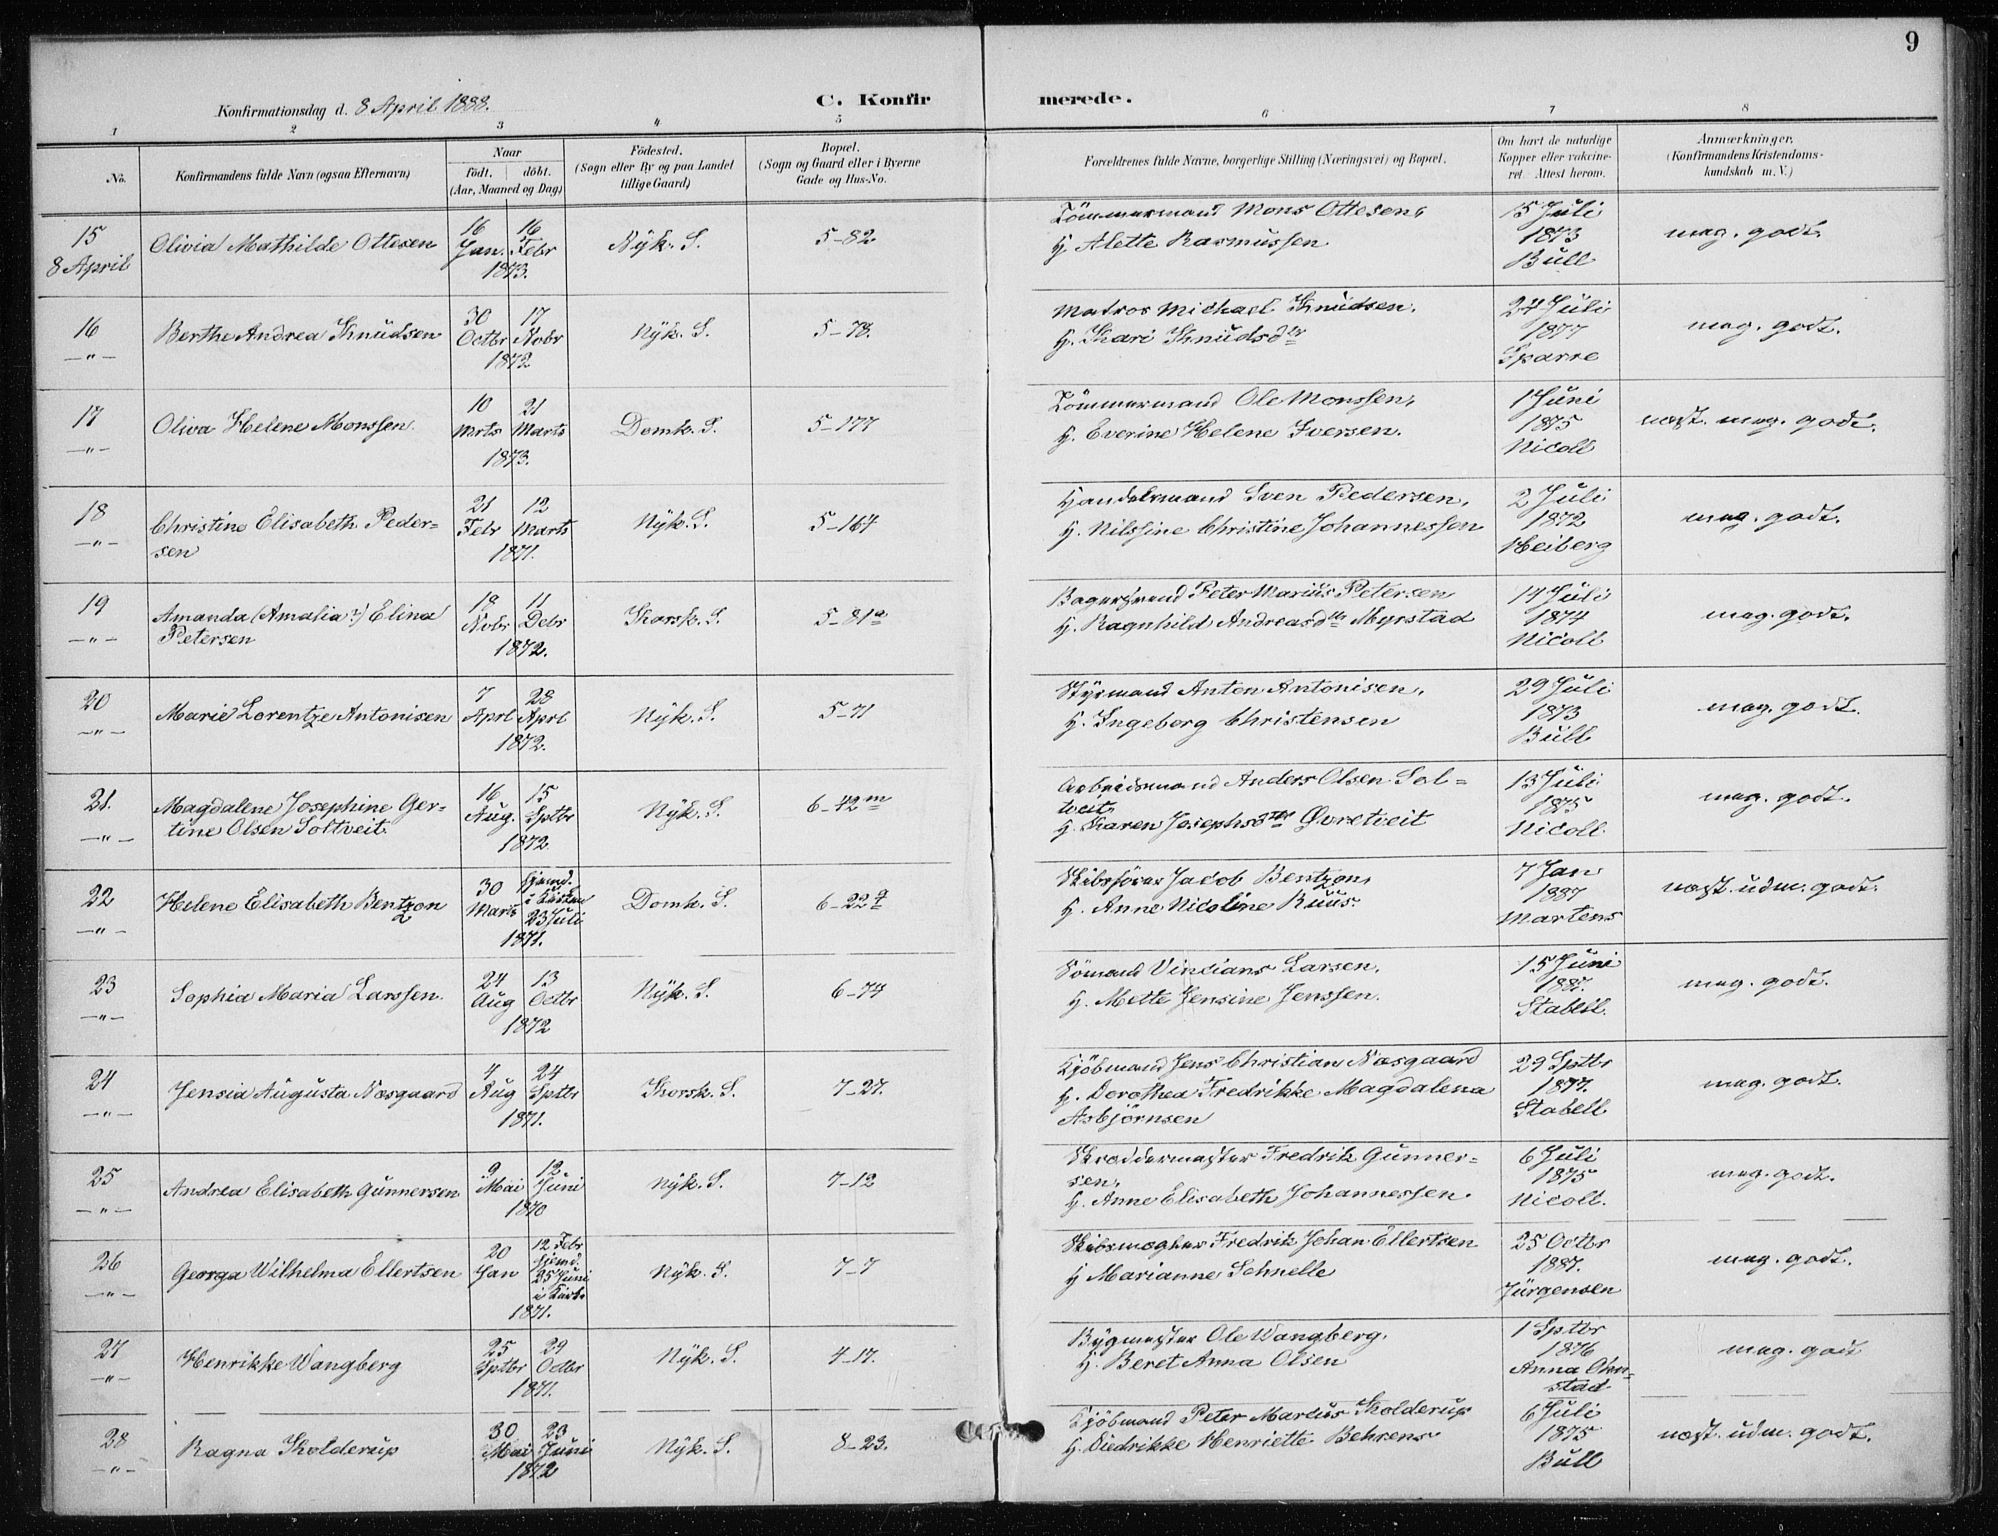 9
Konfirmationsdag d. 8 April 1888.
C. Konfirmerede.
1 2 3 4 5 6 7 8
No.
Konfirmandens fulde Navn (ogsaa Efternavn)
Naar
födt. döbt.
(Aar, Maaned og Dag)
Födested.
(Sogn eller By og paa Landet
tillige Gaard)
Bopæl.
(Sogn og Gaard eller i Byerne
Gade og Hus-No.
Forældrenes fulde Navne, borgerlige Stilling (Næringsvei) og Bopæl.
Om havt de naturlige
Kopper eller vakcine-
ret. Attest herom.
Anmærkninger.
(Konfirmandens Kristendoms-
kundskab m. V.)
15
8 April
Olivia Mathilde Ottesen
16 16
Jan. Febr
1873.
Nÿk. S.
5-82
Tömmermand Mons Ottesen,
H. Alette Rasmussen
15 Juli
1873
Bull
mag. godt.
16
—"—
Berthe Andrea Knudsen
30 17
Octbr Nobr
1872
Nÿk. S.
5-78.
Matros Michael Knudsen.
H. Kari Knudsdtr
24 Juli
1877
Sparre
mag. godt.
17
—"—
Oliva Helene Monssen.
10 21
Mrts Marts
1873.
Domk. S.
5-177
Tömmermand Ole Monssen,
H. Everine Helene Iversen.
1 Juni
1875
Nicoll
næst. mag. godt.
18
—"—
Christine Elisabeth Peder=
sen
21 12
Febr Marts
1871.
Nÿk. S.
5-164
Handelsmand Sven Pedersen,
H. Nilssine Christine Johannessen
2 Juli
1872
Heiberg
mag. godt.
19
—"—
Amanda (Amalia?) Elina
Petersen
18 11
Nobr Debr
1872.
Korsk. S.
5-81a
Bagersvend Peter Marius Petersen
H. Ragnhild Andreasdtr Myrstad
14 Juli
1874
Nicoll
mag. godt.
20
—"—
Marie Lorentze Antonisen
7 28
Aprl Aprl
1872.
Nÿk. S.
5-71
Stÿrmand Anton Antonisen,
H. Ingeborg Christensen
29 Juli
1873
Bull
mag. godt.
21.
—"—
Magdalene Josephine Ger-
tine Olsen Soltveit.
16 15
Aug. Sptbr
1872.
Nÿk. S.
6-42m
Arbeidsmand Anders Olsen Sol=
tveit,
H. Karen Josephsdtr Øvretveit
13 Juli
1875
Nicoll.
mag. godt.
22
—"—
Helene Elisabeth Bentzon
30 Hjemd.
Marts i Kirken
23 Juli
1871.
Domk. S.
6-22q
Skibsförer Jacob Bentzon,
H. Anne Nicoline Ruus.
7 Jan
1887
Martens
næst. udm. godt.
23
—"—
Sophia Maria Larssen.
24 13
Aug Octbr
1872
Nÿk. S.
6-74
Sömand Vincians Larsen,
H. Mette Jensine Jenssen.
15 Juni
188?.
Stabell.
mag. godt.
24
—"—
Jensia Augusta Næsgaard
4 24
Aug Sptbr
1871.
Korsk. S.
7-27.
Kjöbmand Jens Christian Næsgaard
H. Dorothea Fredrikke Magdalena
Asbjörnsen
29 Sptbr
1877.
Stabell
mag. godt.
25
—"—
Andrea Elisabeth Gunnersen
9 12
Mai Juni
1870
Nÿk. S.
7-12
Skræddermester Fredrik Gunner-
sen,
H. Anne Elisabeth Johannessen.
6 Juli
1875
Nicoll.
mag. godt.
26
—"—
Georga Wilhelma Ellertsen
20 12 Febr
Jan Hjemd.
25 Juni
i Kirk.
1871.
Nÿk. S.
7-7
Skibsmægler Fredrik Johan Ellertsen
H Marianne Schnelle
25 Octbr
1887.
Jürgensen
mag. godt.
27
—"—
Henrikke Wangberg
25 29
Sptbr Octbr
1871.
Nÿk. S.
4-17.
Bÿgmester Ole Wangberg.
H. Beret Anna Olsen
1 Sptbr
1876
Anna Oken=
stad
mag. godt
28
—"—
Ragna Kolderup
30 23
Mai Juni
1872
Nÿk. S.
8-23.
Kjöbmand Peter Marius Kolderup
H. Diedrikke Henriette Behrens
6 Juli
1875
Bull
næst. udm. godt.